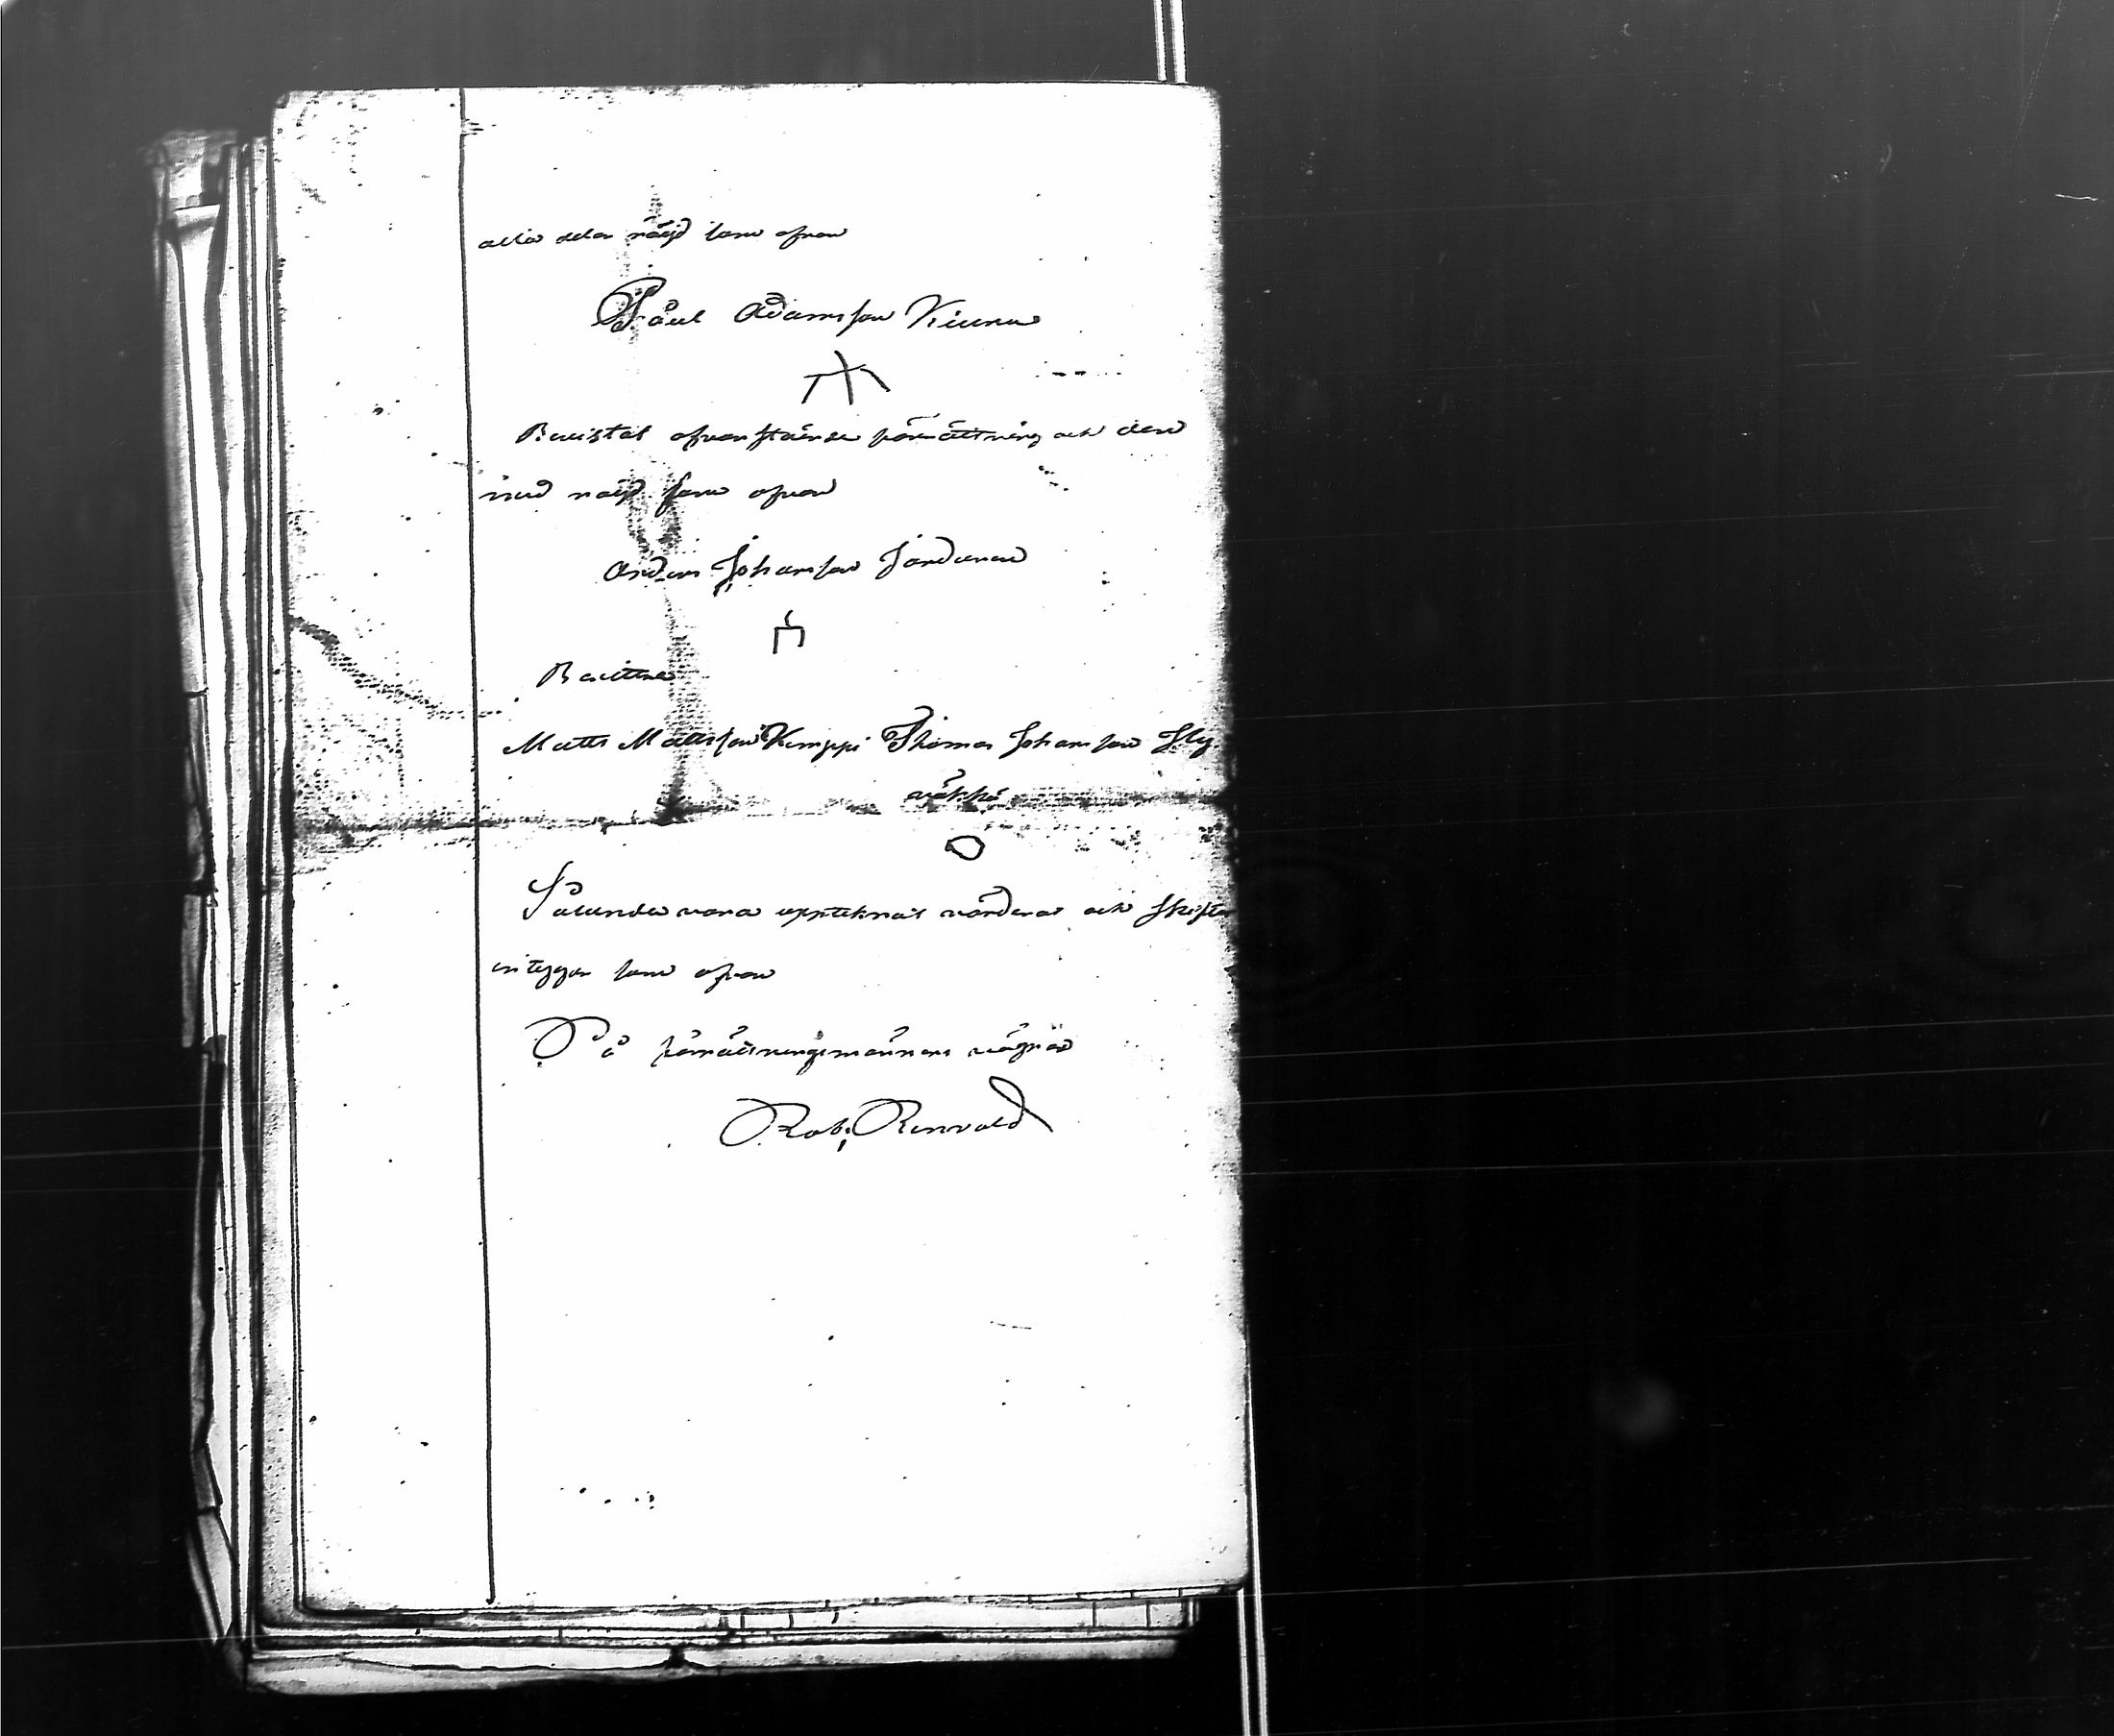 alla delar nöijd som ofvan
Påul Adamsson Kiuru
Bevistat ofvanstående förrättning och der
med nöijd som ofvan
Anders Johansson Jordanen
Bevittna
Matts Mattsson Kemppi Thomas Johansson Hy
väkkä
Sålunda vara upptecknat värderat och skiftat
intygar som ofvan
På förrättningsmännens vägnar
Rob: Renvald